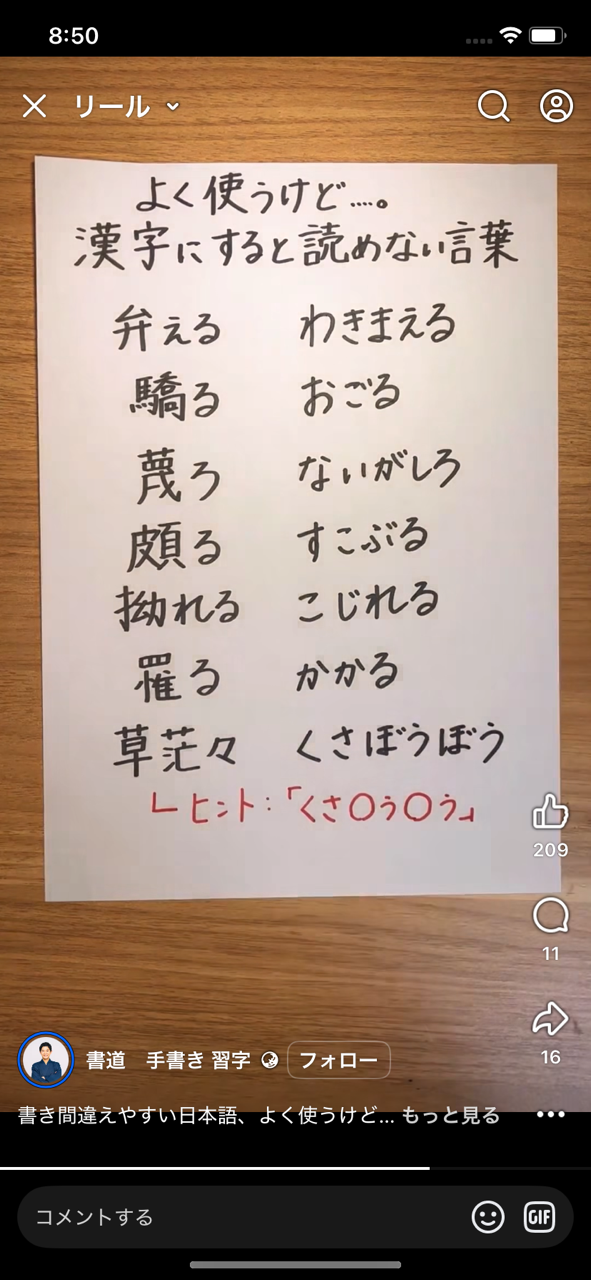 8:50
リール
よく使うけど....。
漢字にすると読めない言葉
弁える わきまえる
驕る おごる
蔑ろ ないがしろ
頗る すこぶる
拗れる こじれる
罹る かかる
草茫々 くさぼうぼう
ヒント:「くさ〇う〇う」
209
11
16
書道 手書き 習字 フォロー
書き間違えやすい日本語、よく使うけど... もっと見る
コメントする
GIF